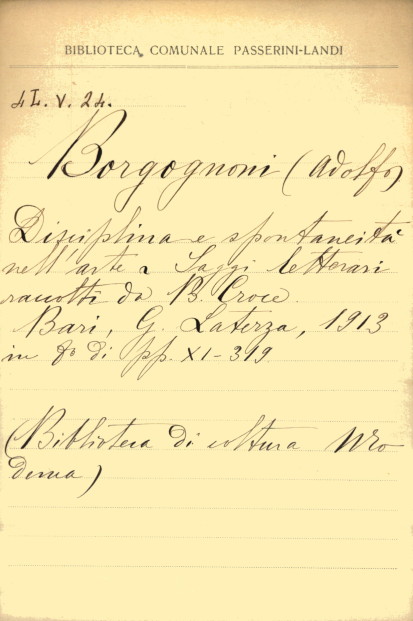 BIBLIOTECA COMUNALE PASSERINI-LANDI
4L. V. 24.
Borgognoni (Adolfo)
Disciplina e spontaneità
nell'arte. Saggi letterari
raccolti da B. Croce.
Bari, G. Laterza, 1913
in 8º di pp. XI-319
(Biblioteca di coltura Mo
derna)